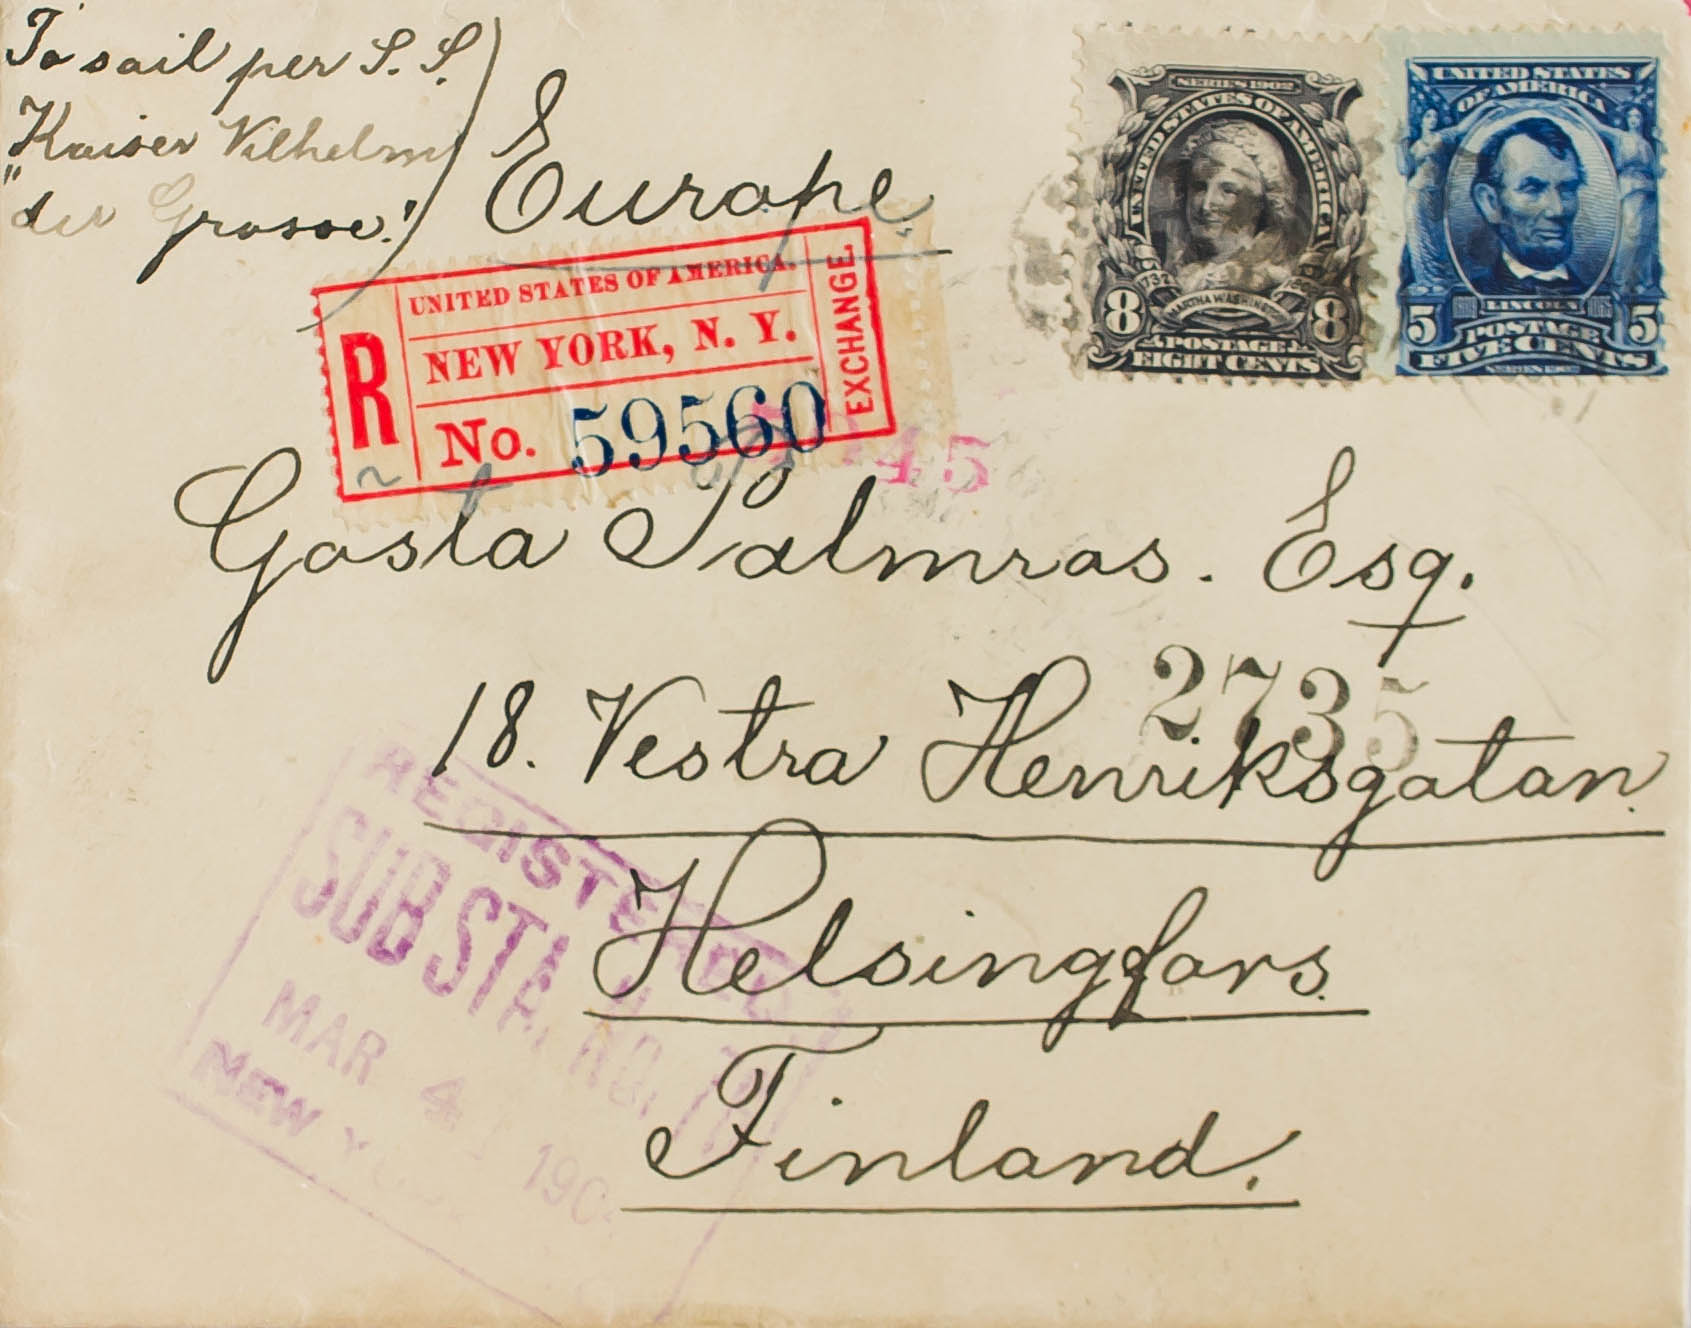 To sail per S. S.
"Kaiser Vilhelm
der Grosse."
Europe.
SERIES 1902
UNITED STATES OF AMERICA
1732
MARTHA WASHINGTON
8 POSTAGE 8
EIGHT CENTS
UNITED STATES
OF AMERICA
LINCOLN
5 POSTAGE 5
FIVE CENTS
R
UNITED STATES OF AMERICA.
NEW YORK, N. Y.
No. 59560
EXCHANGE
45
Gosta Palmras. Esq.
2735
18. Vestra Henriksgatan.
Helsingfors.
Finland.
REGISTERED
SUB STA. NO.
MAR 4 190
NEW YORK